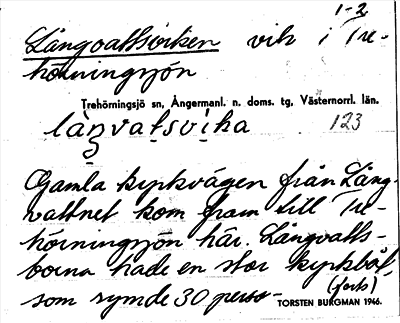 1-2
Långvattsviken vik i Tre-
hörningsjön
Trehörningsjö sn, Ångermanl. n. doms. tg, Västernorrl. län.
långvatsvika 123
Gamla kyrkvägen från Lång-
vattnet kom fram till Tre-
hörningsjön här. Långvatts-
borna hade en stor kyrkbåt,
som rymde 30 perso- (forts)
TORSTEN BURGMAN 1946.